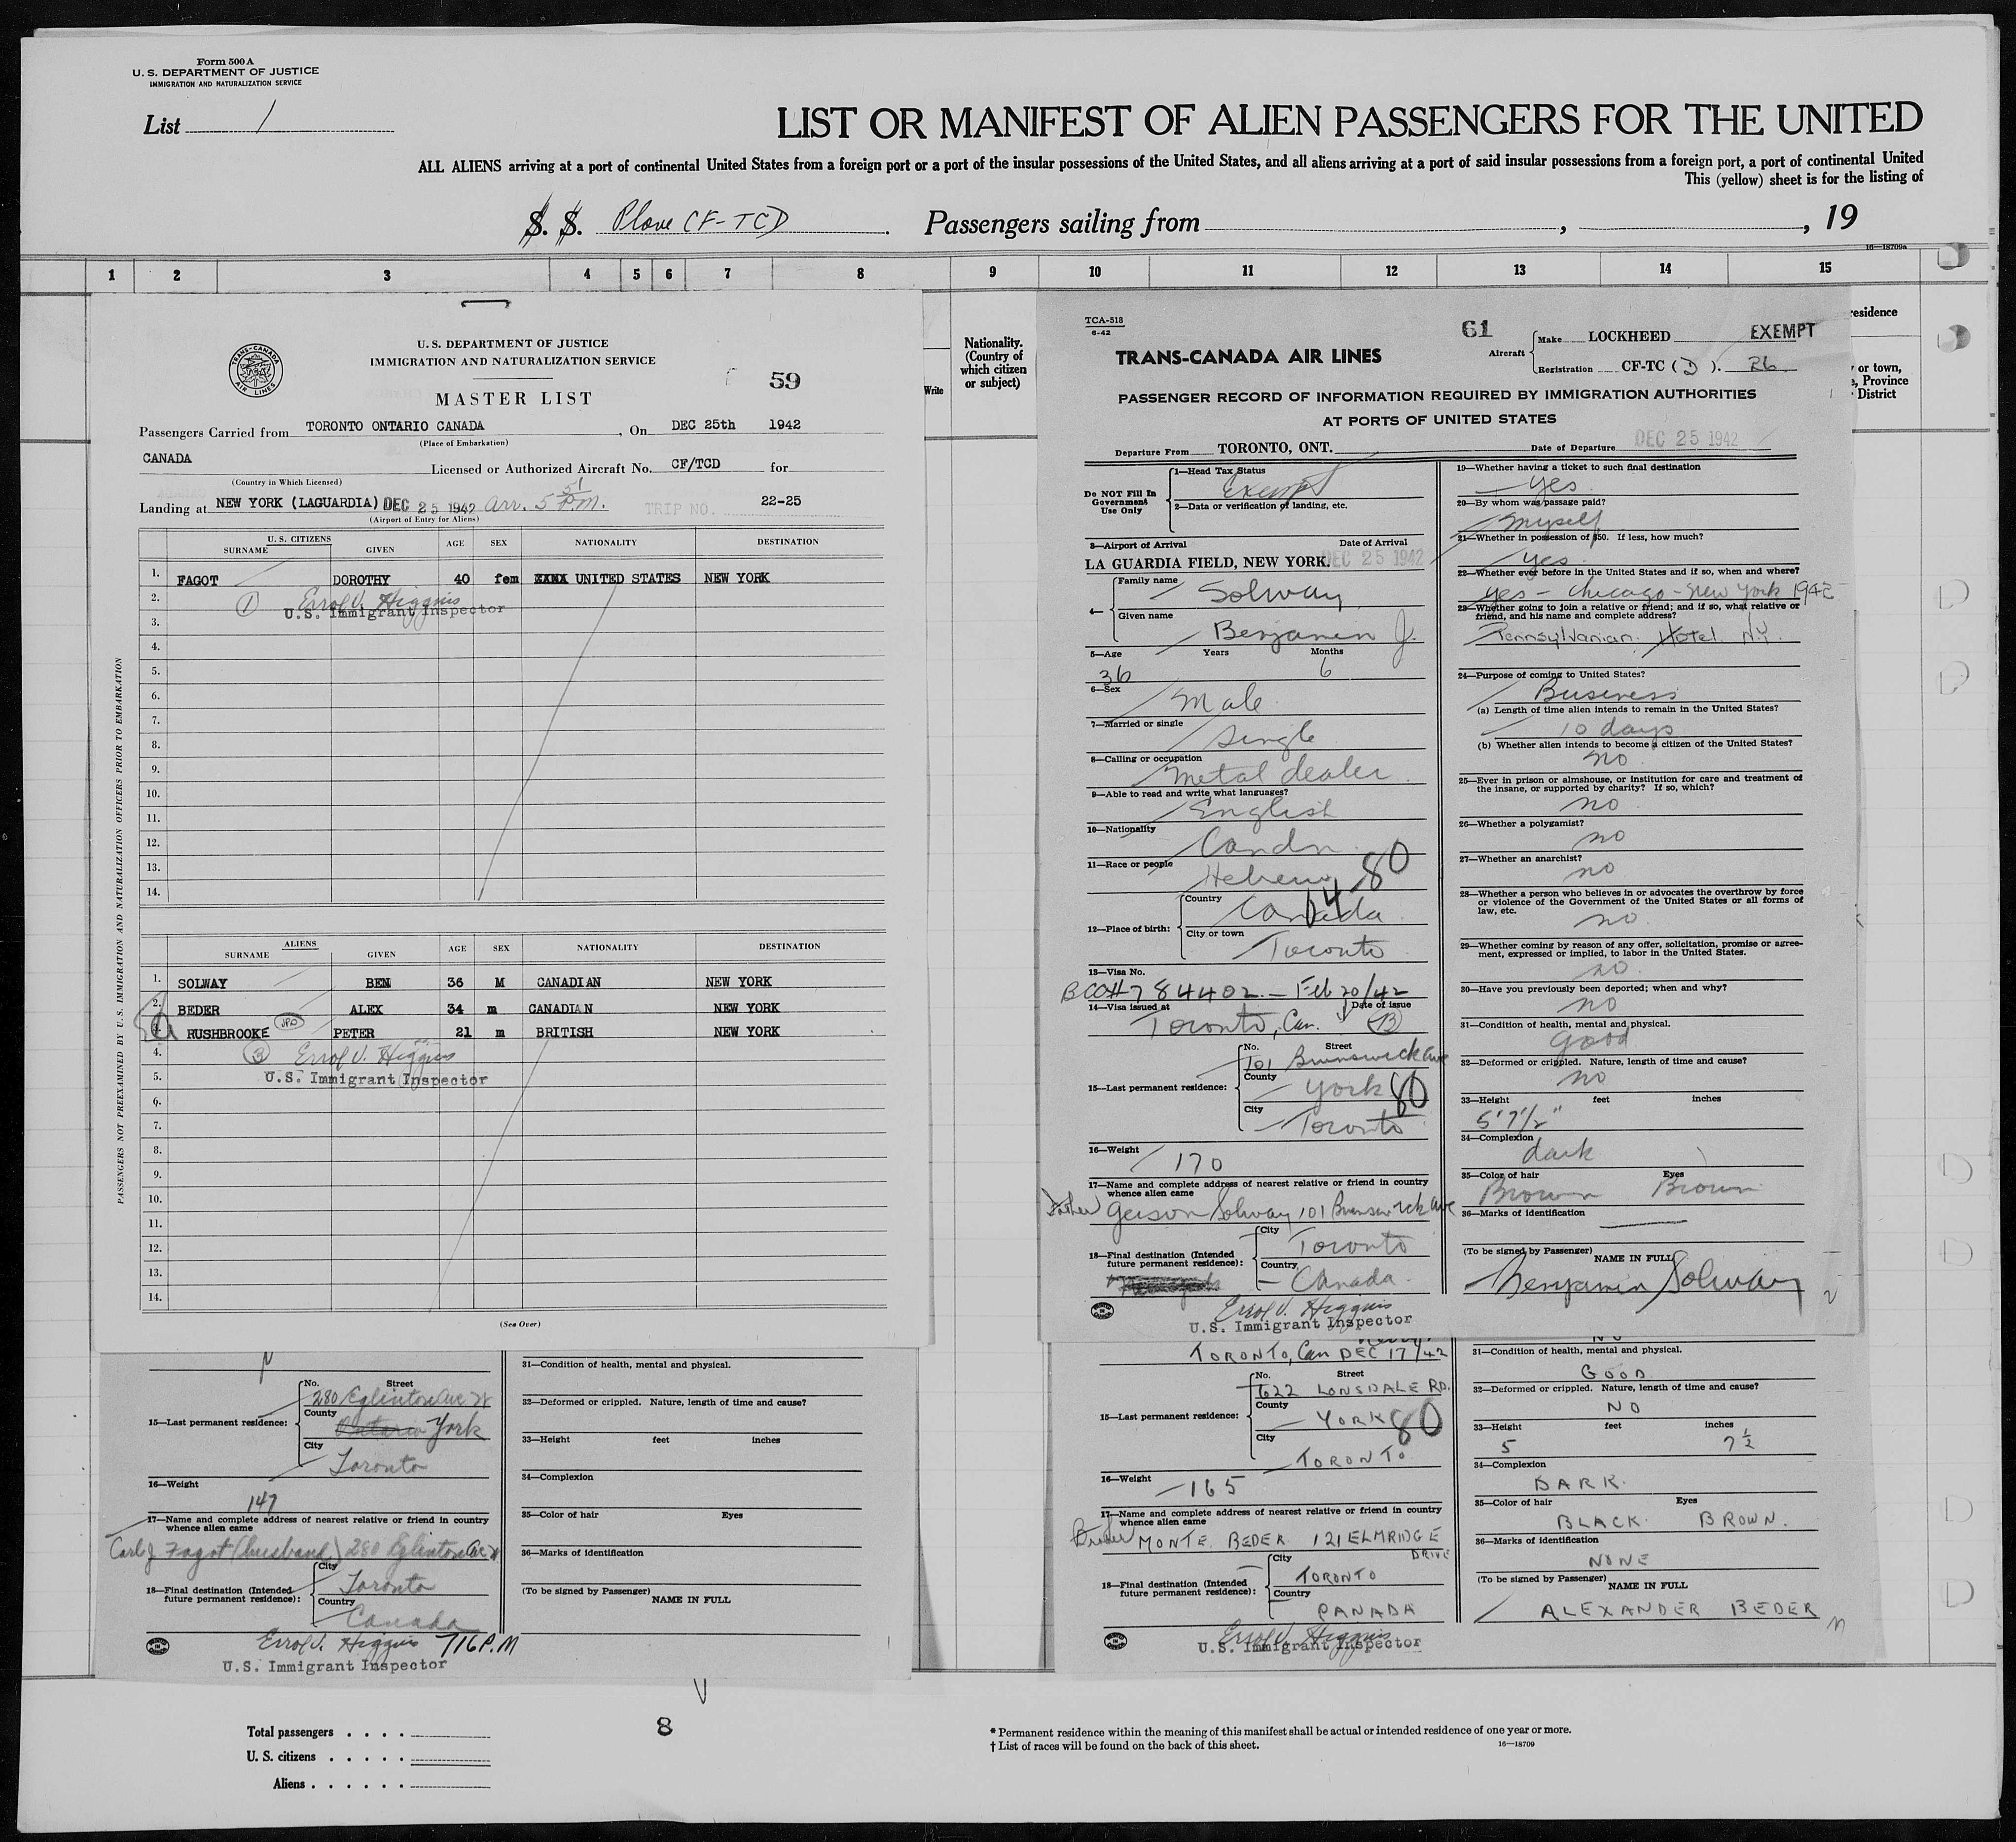 Form 500 A
U. S. DEPARTMENT OF JUSTICE
IMMIGRATION AND NATURALIZATION SERVICE
List 1
LIST OR MANIFEST OF ALIEN PASSENGERS FOR THE UNITED
ALL ALIENS arriving at a port of continental United States from a foreign port or a port of the insular possessions of the United States, and all aliens arriving at a port of said insular possessions from a foreign port, a port of continental United
This (yellow) sheet is for the listing of
S. S. Plane CF-TCD. Passengers sailing from , , 19
16—18709a
1 2 3 4 5 6 7 8 9 10 11 12 13 14 15
TRANS-CANADA AIR LINES
U. S. DEPARTMENT OF JUSTICE
IMMIGRATION AND NATURALIZATION SERVICE
59
MASTER LIST
Passengers Carried from TORONTO ONTARIO CANADA, On DEC 25th 1942
(Place of Embarkation)
CANADA Licensed or Authorized Aircraft No. CF/TCD for
(Country in Which Licensed)
Landing at NEW YORK (LAGUARDIA) DEC 25 1942 arr. 5 51 P.M. TRIP NO. 22-25
(Airport of Entry for Aliens)
U. S. CITIZENS
SURNAME GIVEN AGE SEX NATIONALITY DESTINATION
1. FAGOT DOROTHY 40 fem UNITED STATES NEW YORK
2. 1 Errol V. Higgins
U.S. Immigrant Inspector
3.
4.
5.
6.
7.
8.
9.
10.
11.
12.
13.
14.
ALIENS
SURNAME GIVEN AGE SEX NATIONALITY DESTINATION
1. SOLWAY BEN 36 M CANADIAN NEW YORK
2. BEDER ALEX 34 m CANADIAN NEW YORK
3. RUSHBROOKE PETER 21 m BRITISH NEW YORK
4. 3 Errol V. Higgins
5. U.S. Immigrant Inspector
6.
7.
8.
9.
10.
11.
12.
13.
14.
(See Over)
PASSENGERS NOT PREEXAMINED BY U.S. IMMIGRATION AND NATURALIZATION OFFICERS PRIOR TO EMBARKATION
Write
Nationality.
(Country of
which citizen
or subject)
residence
or town,
, Province
District
TCA-518
6-42
61
TRANS-CANADA AIR LINES
Aircraft
Make LOCKHEED EXEMPT
Registration CF-TC (D). 26
PASSENGER RECORD OF INFORMATION REQUIRED BY IMMIGRATION AUTHORITIES
AT PORTS OF UNITED STATES
Departure From TORONTO, ONT. Date of Departure DEC 25 1942
Do NOT Fill In
Government
Use Only
1—Head Tax Status
Exempt
2—Data or verification of landing, etc.
3—Airport of Arrival Date of Arrival
LA GUARDIA FIELD, NEW YORK. DEC 25 1942
4—
Family name Solway
Given name Benjamin J.
5—Age Years Months
36 6
6—Sex
Male
7—Married or single
Single
8—Calling or occupation
Metal dealer
9—Able to read and write what languages?
English
10—Nationality
Candn
11—Race or people
Hebrew 80
14
12—Place of birth:
Country
Canada
City or town
Toronto
13—Visa No.
BCC# 784402 — Feb 20/42
14—Visa issued at Date of issue
Toronto, Can. B
15—Last permanent residence:
No. Street
101 Brunswick Ave
County
York 80
City
Toronto
16—Weight
170
17—Name and complete address of nearest relative or friend in country
whence alien came
father Gerson Solway 101 Brunswick Ave
18—Final destination (Intended
future permanent residence):
City
Toronto
Country
Canada
Errol V. Higgins
U.S. Immigrant Inspector
19—Whether having a ticket to such final destination
Yes
20—By whom was passage paid?
Myself
21—Whether in possession of $50. If less, how much?
Yes
22—Whether ever before in the United States and if so, when and where?
Yes - Chicago - New York 1942
23—Whether going to join a relative or friend; and if so, what relative or
friend, and his name and complete address?
Pennsylvanian Hotel N.Y.
24—Purpose of coming to United States?
Business
(a) Length of time alien intends to remain in the United States?
10 days
(b) Whether alien intends to become a citizen of the United States?
no
25—Ever in prison or almshouse, or institution for care and treatment of
the insane, or supported by charity? If so, which?
no
26—Whether a polygamist?
no
27—Whether an anarchist?
no
28—Whether a person who believes in or advocates the overthrow by force
or violence of the Government of the United States or all forms of
law, etc.
no
29—Whether coming by reason of any offer, solicitation, promise or agree-
ment, expressed or implied, to labor in the United States.
no
30—Have you previously been deported; when and why?
no
31—Condition of health, mental and physical.
Good
32—Deformed or crippled. Nature, length of time and cause?
no
33—Height feet inches
5' 7 1/2"
34—Complexion
dark
35—Color of hair Eyes
Brown Brown
36—Marks of identification
(To be signed by Passenger) NAME IN FULL
Benjamin Solway
15—Last permanent residence:
No. Street
280 Eglinton Ave W
County
Ontario York
City
Toronto
16—Weight
147
17—Name and complete address of nearest relative or friend in country
whence alien came
Carl J Fagot (husband) 280 Eglinton Ave W
18—Final destination (Intended
future permanent residence):
City
Toronto
Country
Canada
Errol V. Higgins 716 P.M
U.S. Immigrant Inspector
31—Condition of health, mental and physical.
32—Deformed or crippled. Nature, length of time and cause?
33—Height feet inches
34—Complexion
35—Color of hair Eyes
36—Marks of identification
(To be signed by Passenger)
NAME IN FULL
TORONTO, Can DEC 17/42
15—Last permanent residence:
No. Street
622 LONSDALE RD.
County
YORK 80
City
TORONTO
16—Weight
165
17—Name and complete address of nearest relative or friend in country
whence alien came
MONTE BEDER 121 ELMRIDGE
DRIVE
18—Final destination (Intended
future permanent residence):
City
TORONTO
Country
CANADA
Errol V. Higgins
U.S. Immigrant Inspector
NO
31—Condition of health, mental and physical.
GOOD
32—Deformed or crippled. Nature, length of time and cause?
NO
33—Height feet inches
5 7 1/2
34—Complexion
DARK.
35—Color of hair Eyes
BLACK BROWN.
36—Marks of identification
NONE
(To be signed by Passenger)
NAME IN FULL
ALEXANDER BEDER
Total passengers . . . .
U. S. citizens . . . . .
Aliens . . . . . .
8
* Permanent residence within the meaning of this manifest shall be actual or intended residence of one year or more.
† List of races will be found on the back of this sheet.
16—18709